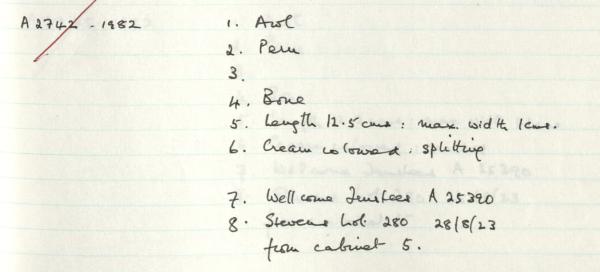 A 2742 - 1982
1. Awl
2. Peru
3.
4. Bone
5. Length 12.5 cms : max. width 1cms.
6. Cream coloured. splitting
7. Wellcome Trustees A 25390
8. Stevens Lot 280 28/8/23
from cabinet 5.